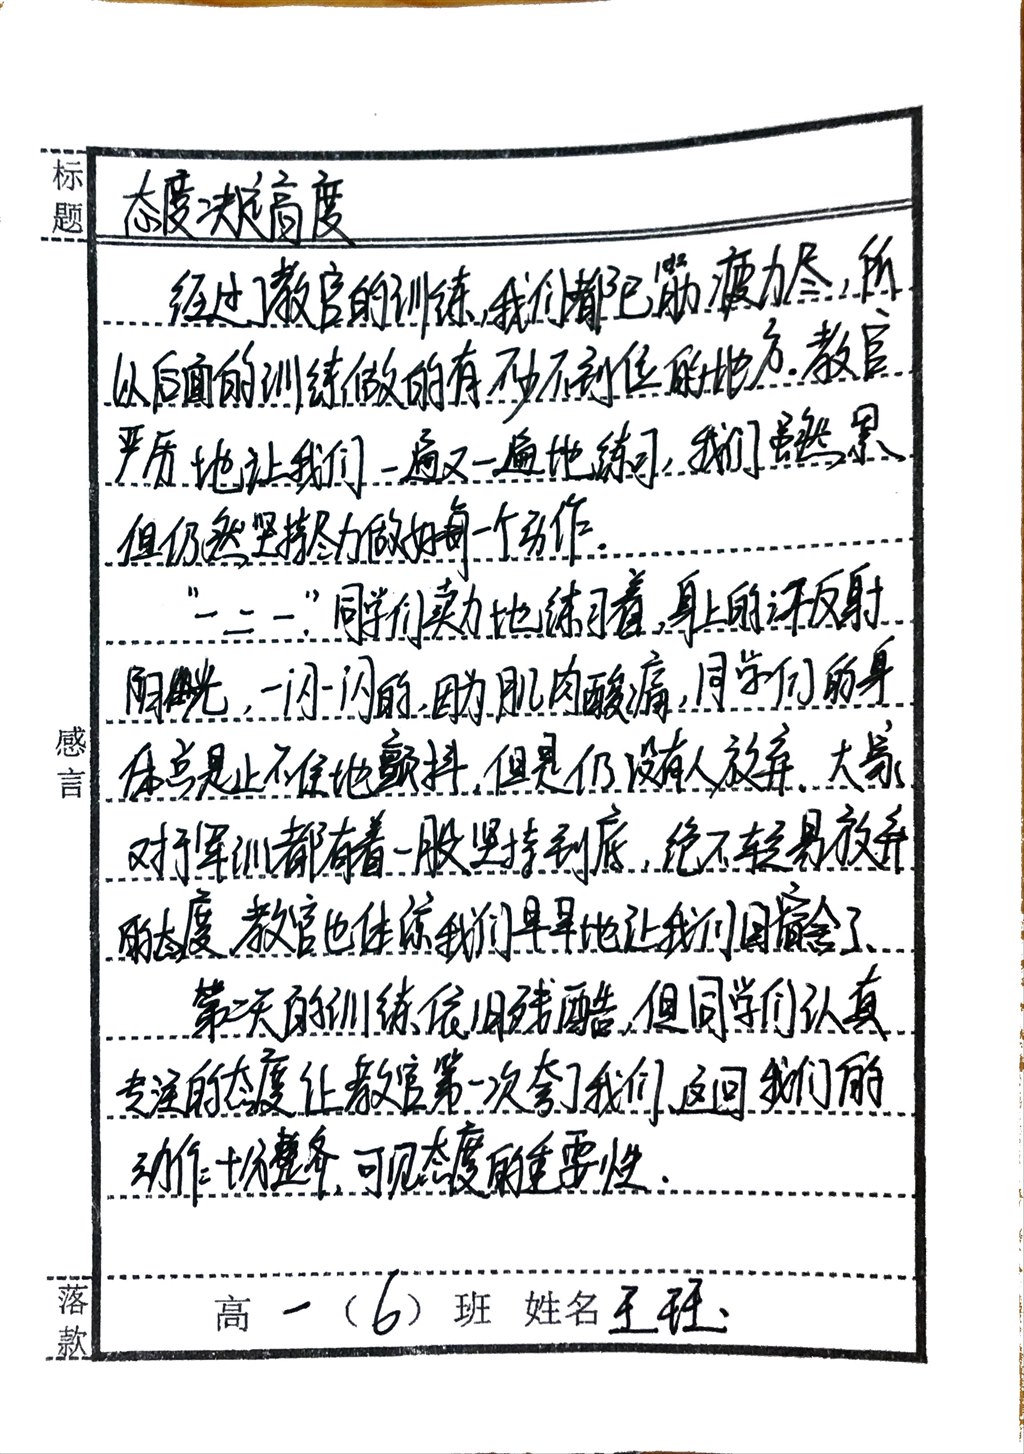 标题
态度决定高度
经过了教官的训练,我们都已筋疲力尽,所
以后面的训练做的有不少不到位的地方.教官
严厉地让我们一遍又一遍地练习,我们虽然累
但仍然坚持尽力做好每一个动作.
"一二一."同学们卖力地练习着,身上的汗反射
阳光,一闪一闪的,因为肌肉酸痛,同学们的身
体总是止不住地颤抖,但是仍没有人放弃.大家
对于军训都有着一股坚持到底,绝不轻易放弃
的态度,教官也体谅我们早早地让我们回宿舍了、
感言
第二天的训练依旧残酷,但同学们认真
专注的态度让教官第一次夸了我们,这回我们的
动作十分整齐,可见态度的重要性.
落款
高一(6)班 姓名王珏